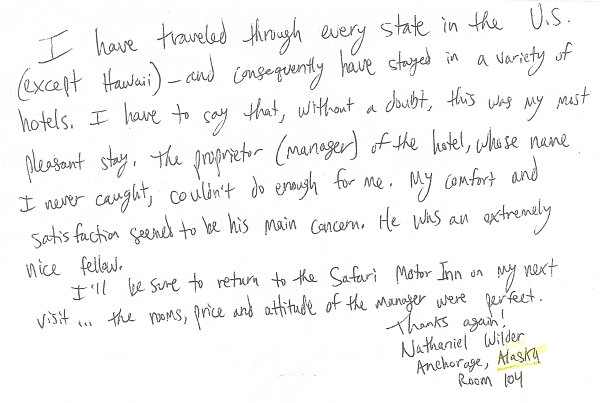 I have traveled through every state in the U.S.
(except Hawaii) – and consequently have stayed in a variety of
hotels. I have to say that, without a doubt, this was my most
pleasant stay. The proprietor (manager) of the hotel, whose name
I never caught, couldn't do enough for me. My comfort and
satisfaction seemed to be his main concern. He was an extremely
nice fellow.
I'll be sure to return to the Safari Motor Inn on my next
visit... the rooms, price and attitude of the manager were perfect.
Thanks again!
Nathaniel Wilder
Anchorage, Alaska
Room 104